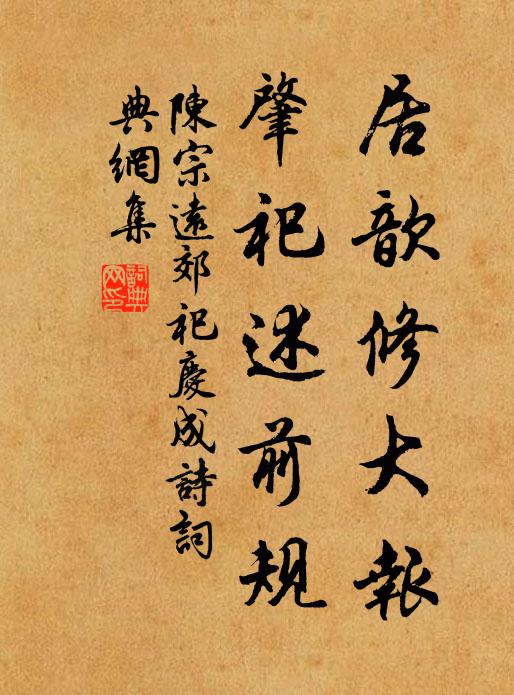 居歆修大報
肇祀述前規
陳宗遠郊祀慶成詩詞
典網集
詞典網印